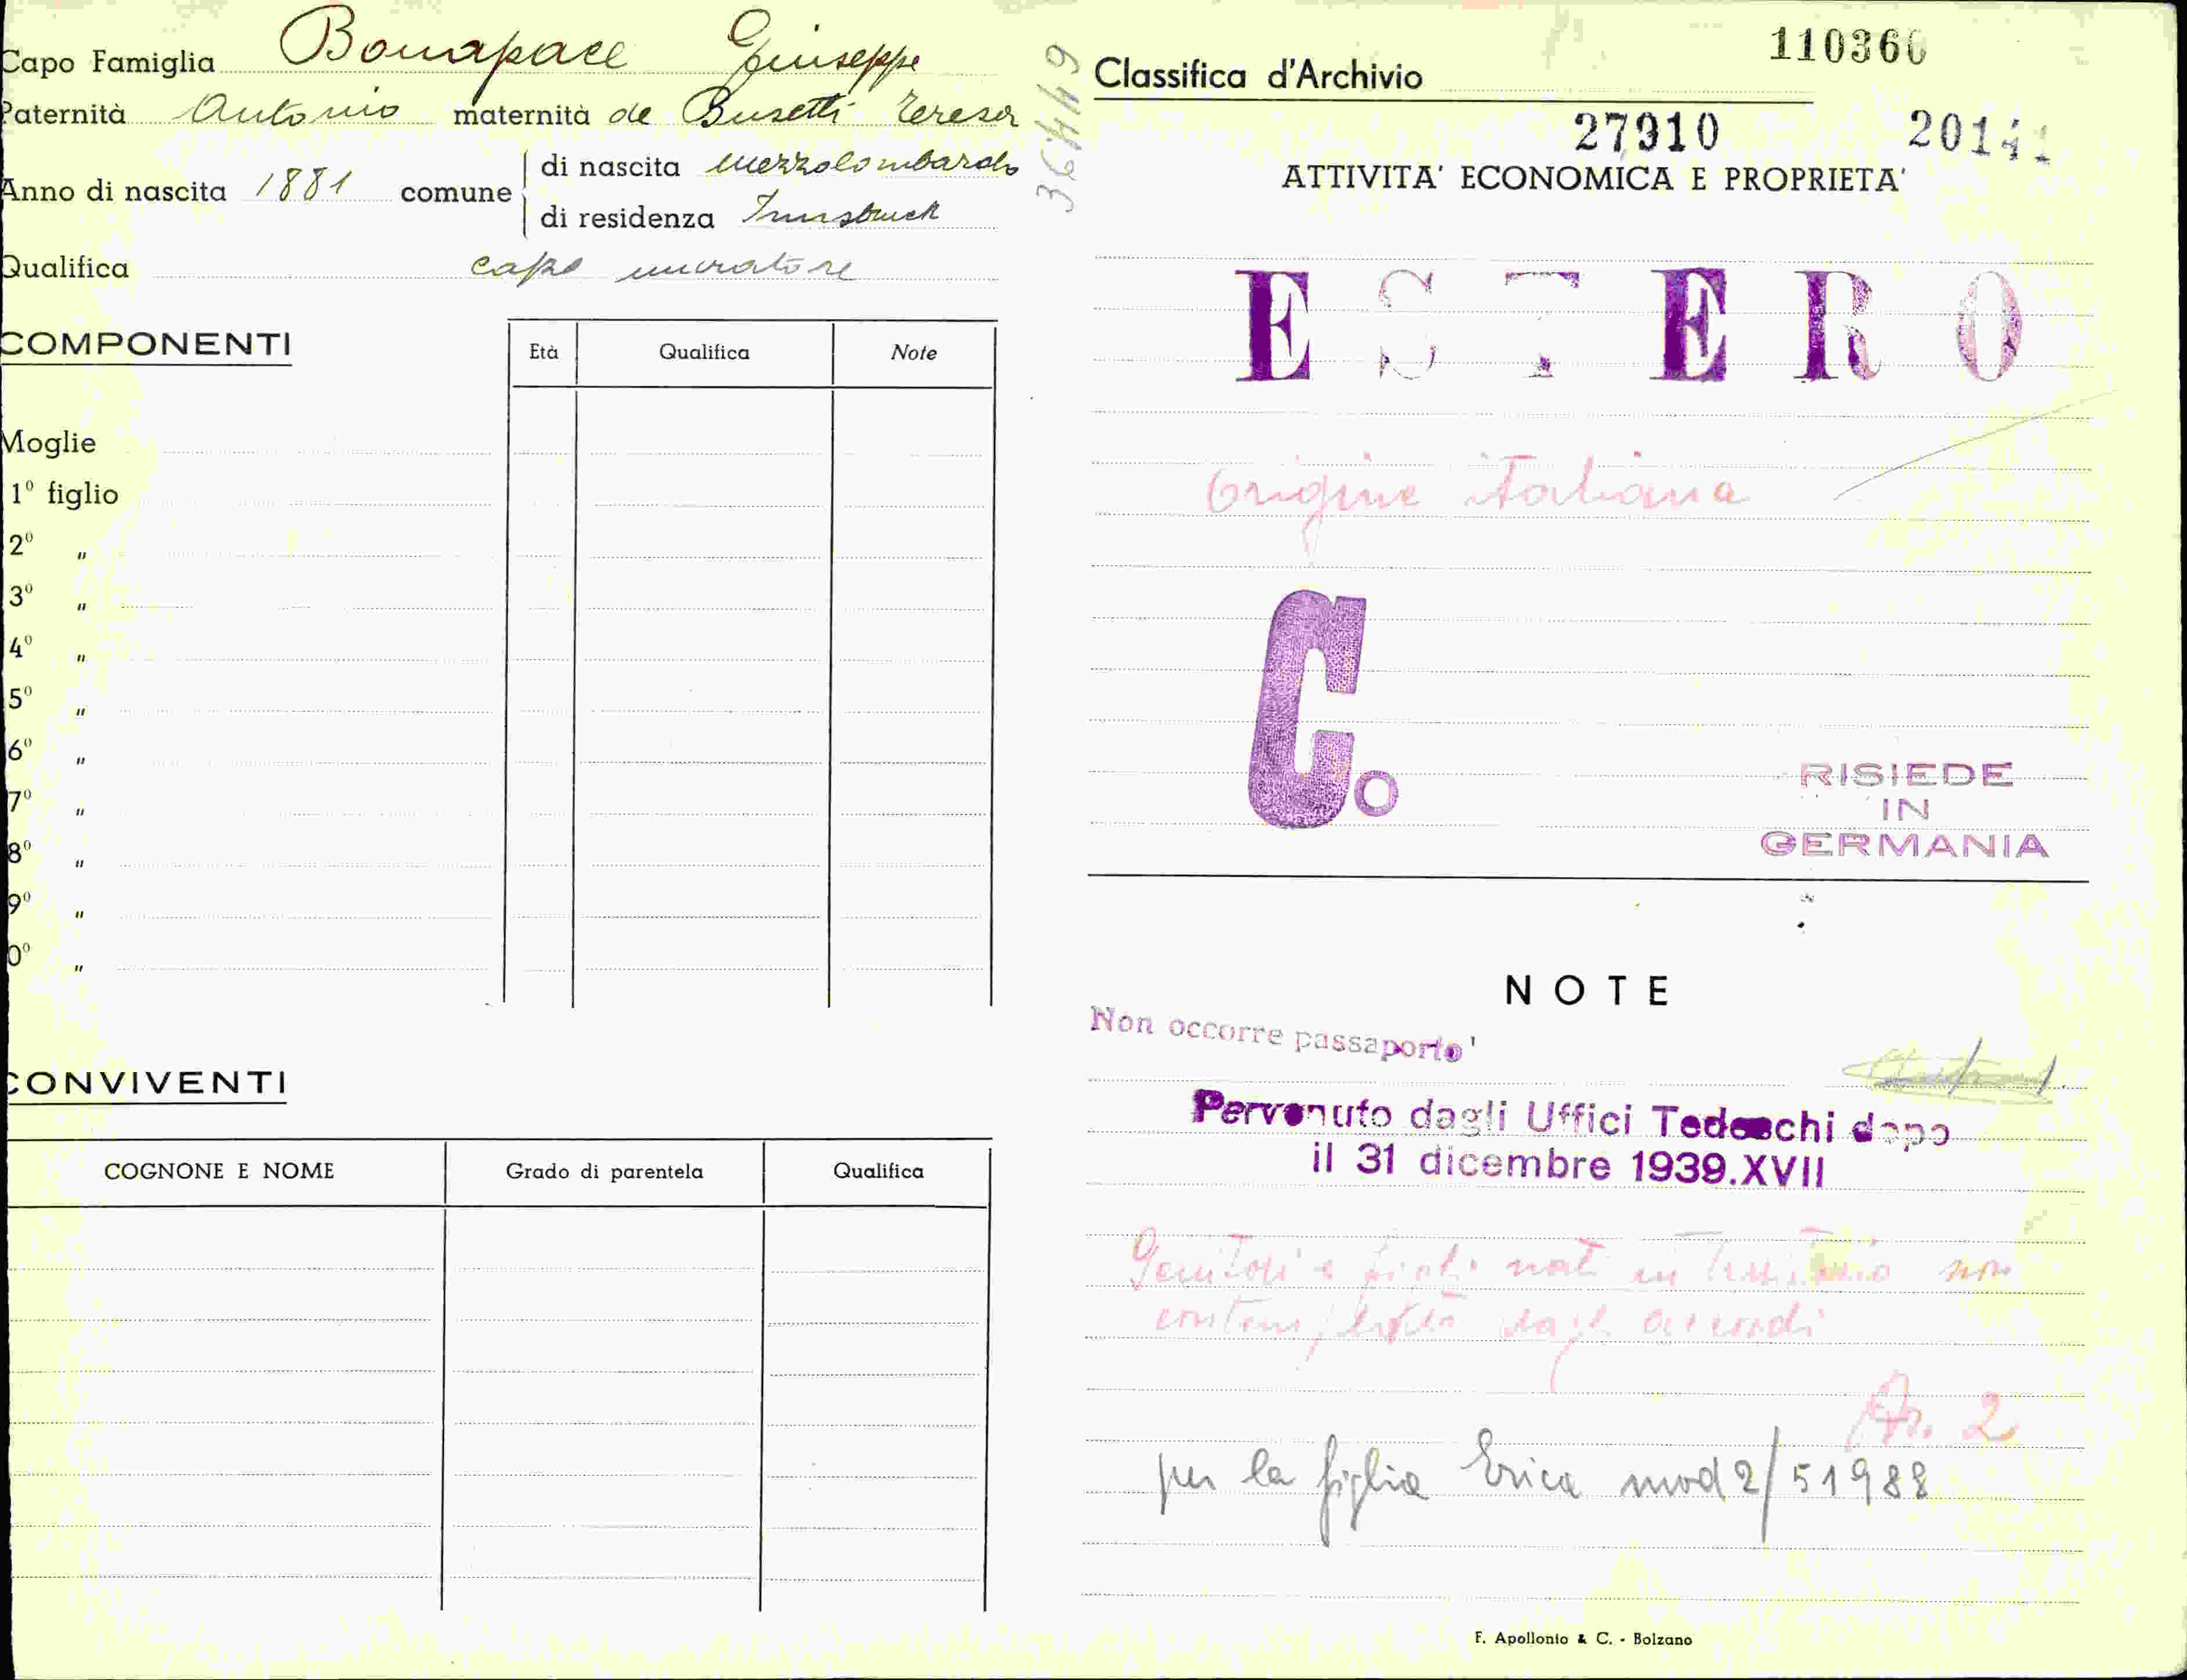 Capo Famiglia Bonapace Giuseppe
Paternità Antonio maternità de Busetti Teresa
Anno di nascita 1881 comune
di nascita Mezzolombardo
di residenza Innsbruck
Qualifica capo muratore
COMPONENTI
Età Qualifica Note
Moglie
1º figlio
2º "
3º "
4º "
5º "
6º "
7º "
8º "
9º "
0º "
CONVIVENTI
COGNONE E NOME Grado di parentela Qualifica
364449
110366
Classifica d'Archivio
27910 20141
ATTIVITA' ECONOMICA E PROPRIETA'
ESTERO
Origine italiana
Co
RISIEDE
IN
GERMANIA
NOTE
Non occorre passaporto
Pervenuto dagli Uffici Tedeschi dopo
il 31 dicembre 1939.XVII
Genitori e figli nati in non
dagli accordi
2
per la figlia Erica mod 2/51988
F. Apollonio & C. - Bolzano